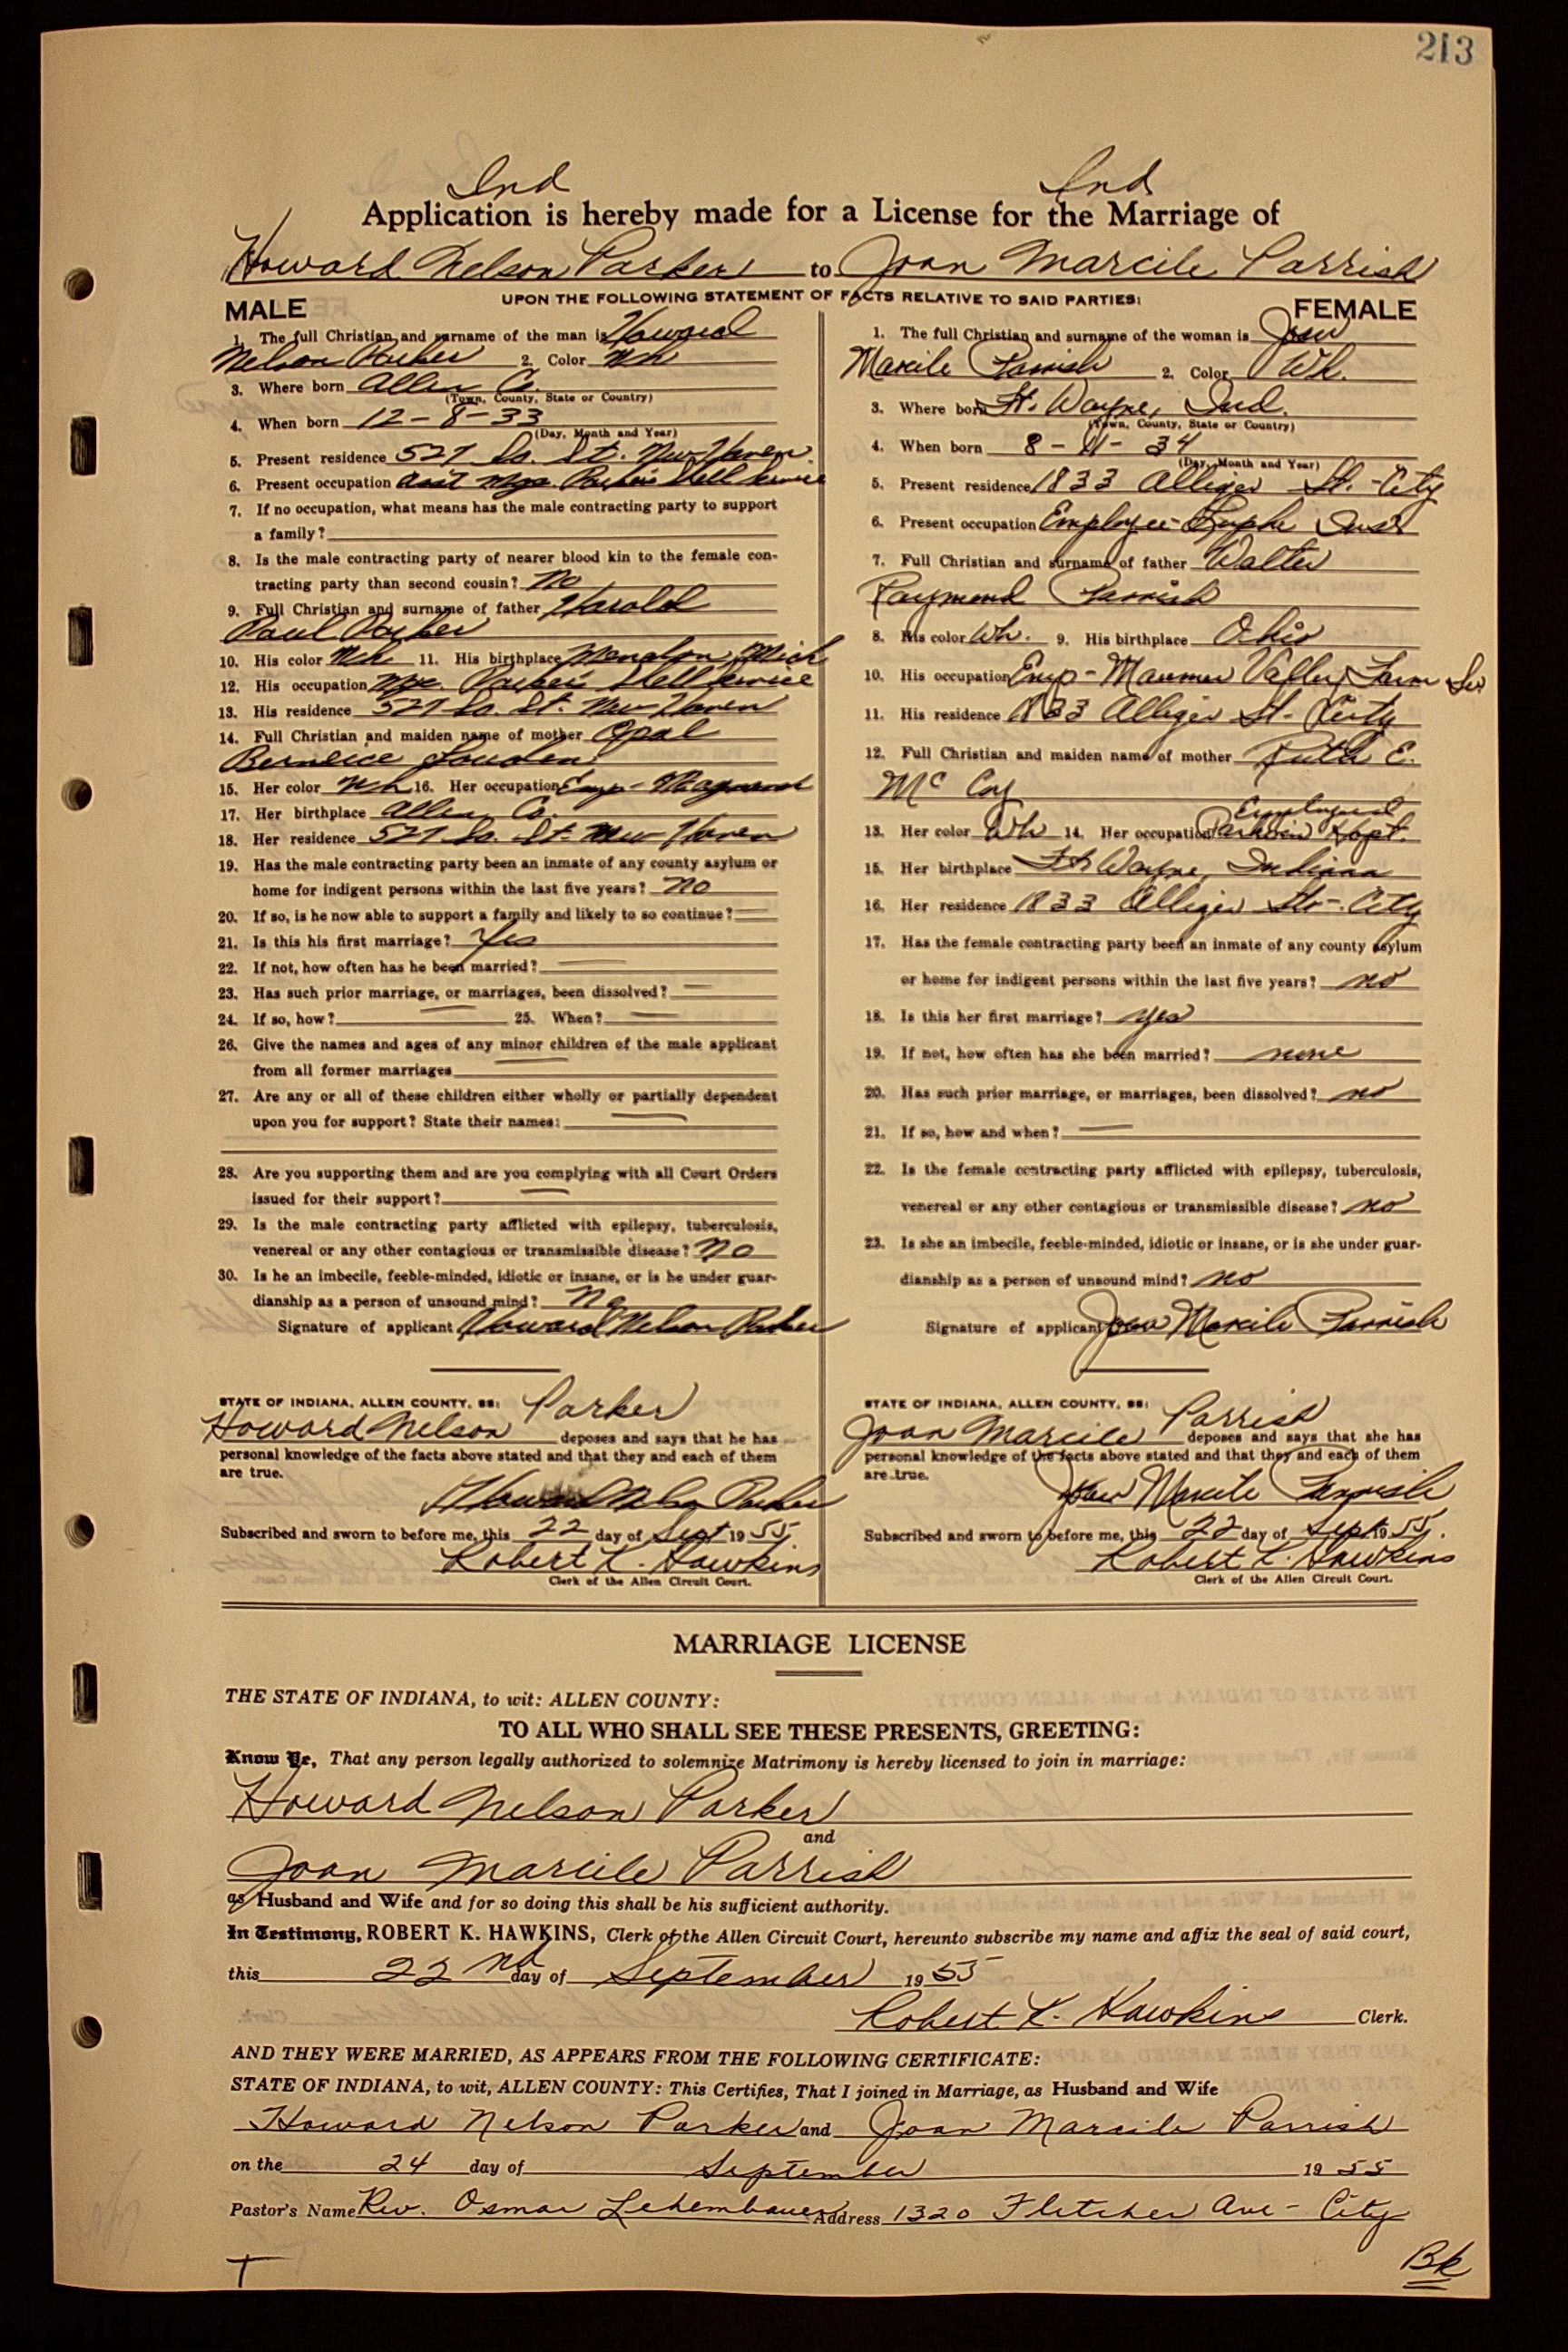 213
Ind Ind
Application is hereby made for a License for the Marriage of
Howard Nelson Parker to Joan Marcile Parrish
UPON THE FOLLOWING STATEMENT OF FACTS RELATIVE TO SAID PARTIES:
MALE
1. The full Christian and surname of the man is Howard
Nelson Parker 2. Color Wh
3. Where born Allen Co.
(Town, County, State or Country)
4. When born 12-8-33
(Day, Month and Year)
5. Present residence 527 So. St. New Haven
6. Present occupation Ass't Mgr. Parker's Shell Service
7. If no occupation, what means has the male contracting party to support
a family?
8. Is the male contracting party of nearer blood kin to the female con-
tracting party than second cousin? No
9. Full Christian and surname of father Harold
Paul Parker
10. His color Wh 11. His birthplace Mendon, Mich
12. His occupation Mgr. Parker's Shell Service
13. His residence 527 So. St. New Haven
14. Full Christian and maiden name of mother Opal
Berneice Louden
15. Her color Wh 16. Her occupation Emp- Magnavox
17. Her birthplace Allen Co.
18. Her residence 527 So. St. New Haven
19. Has the male contracting party been an inmate of any county asylum or
home for indigent persons within the last five years? No
20. If so, is he now able to support a family and likely to so continue?
21. Is this his first marriage? Yes
22. If not, how often has he been married?
23. Has such prior marriage, or marriages, been dissolved?
24. If so, how? 25. When?
26. Give the names and ages of any minor children of the male applicant
from all former marriages
27. Are any or all of these children either wholly or partially dependent
upon you for support? State their names:
28. Are you supporting them and are you complying with all Court Orders
issued for their support?
29. Is the male contracting party afflicted with epilepsy, tuberculosis,
venereal or any other contagious or transmissible disease? No
30. Is he an imbecile, feeble-minded, idiotic or insane, or is he under guar-
dianship as a person of unsound mind? No
Signature of applicant Howard Nelson Parker
STATE OF INDIANA, ALLEN COUNTY, SS: Parker
Howard Nelson deposes and says that he has
personal knowledge of the facts above stated and that they and each of them
are true.
Howard Nelson Parker
Subscribed and sworn to before me, this 22 day of Sept 1955
Robert K. Hawkins
Clerk of the Allen Circuit Court.
FEMALE
1. The full Christian and surname of the woman is Joan
Marcile Parrish 2. Color Wh.
3. Where born Ft. Wayne, Ind.
(Town, County, State or Country)
4. When born 8-11-34
(Day, Month and Year)
5. Present residence 1833 Alliger St. - City
6. Present occupation Employee-
7. Full Christian and surname of father Walter
Raymond Parrish
8. His color Wh. 9. His birthplace Ohio
10. His occupation Emp - Maumee Valley Farm
11. His residence 1833 Alliger St - City
12. Full Christian and maiden name of mother Ruth E.
Mc Coy
Employed
13. Her color Wh 14. Her occupation Parkview Hospt.
15. Her birthplace Ft Wayne, Indiana
16. Her residence 1833 Alliger St - City
17. Has the female contracting party been an inmate of any county asylum
or home for indigent persons within the last five years? no
18. Is this her first marriage? yes
19. If not, how often has she been married? none
20. Has such prior marriage, or marriages, been dissolved? no
21. If so, how and when?
22. Is the female contracting party afflicted with epilepsy, tuberculosis,
venereal or any other contagious or transmissible disease? no
23. Is she an imbecile, feeble-minded, idiotic or insane, or is she under guar-
dianship as a person of unsound mind? no
Signature of applicant Joan Marcile Parrish
STATE OF INDIANA, ALLEN COUNTY, SS: Parrish
Joan Marcile deposes and says that she has
personal knowledge of the facts above stated and that they and each of them
are true.
Joan Marcile Parrish
Subscribed and sworn to before me, this 22 day of Sept. 1955.
Robert K. Hawkins
Clerk of the Allen Circuit Court.
MARRIAGE LICENSE
THE STATE OF INDIANA, to wit: ALLEN COUNTY:
TO ALL WHO SHALL SEE THESE PRESENTS, GREETING:
Know Ye, That any person legally authorized to solemnize Matrimony is hereby licensed to join in marriage:
Howard Nelson Parker
and
Joan Marcile Parrish
as Husband and Wife and for so doing this shall be his sufficient authority.
In Testimony, ROBERT K. HAWKINS, Clerk of the Allen Circuit Court, hereunto subscribe my name and affix the seal of said court,
this 22nd day of September 1955
Robert K. Hawkins Clerk.
AND THEY WERE MARRIED, AS APPEARS FROM THE FOLLOWING CERTIFICATE:
STATE OF INDIANA, to wit, ALLEN COUNTY: This Certifies, That I joined in Marriage, as Husband and Wife
Howard Nelson Parker and Joan Marcile Parrish
on the 24 day of September 1955
Pastor's Name Rev. Osmar Lehenbauer Address 1320 Fletcher Ave - City
T
Bk